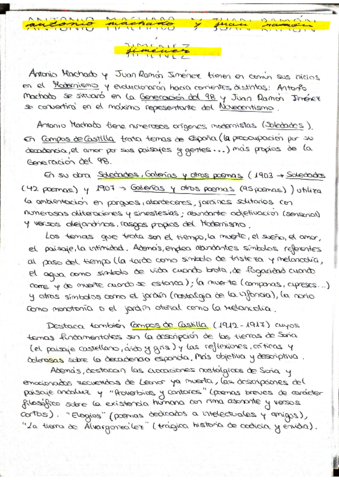 antonio machado y juan ramón
jiménez
Antonio Machado y Juan Ramón Jiménez tienen en común sus inicios
en el Modernismo y evolucionarán hacia corrientes distintas: Antonio
Machado se situará en la Generación del 98 y Juan Ramón Jiménez
se convertirá en el máximo representante del Novecentismo.
Antonio Machado tiene numerosos orígenes modernistas (Soledades).
En Campos de Castilla trata temas de España (la preocupación por su
decadencia, el amor por sus paisajes y gentes...) más propios de la
Generación del 98.
En su obra Soledades, Galerías y otros poemas (1903 → Soledades
(42 poemas) y 1907 → Galerías y otros poemas (95 poemas)) utiliza
la ambientación en parques, atardeceres, jardines solitarios con
numerosas aliteraciones y sinestesias; abundante adjetivación (sensorial)
y versos alejandrinos, rasgos propios del Modernismo.
Los temas que trata son el tiempo, la muerte, el sueño, el amor,
el paisaje, la intimidad. Además, emplea abundantes símbolos referentes
al paso del tiempo (la tarde como símbolo de tristeza y melancolía,
el agua como símbolo de vida cuando brota, de fugacidad cuando
corre y de muerte cuando se estanca); la muerte (campanas, cipreses...)
y otros símbolos como el jardín (nostalgia de la infancia), la noria
como monotonía o el jardín otoñal como la melancolía.
Destaca también Campos de Castilla (1912-1917) cuyos
temas fundamentales son la descripción de las tierras de Soria
(el paisaje castellano, árido y gris) y las reflexiones críticas y
dolorosas sobre la decadencia española. Más objetiva y descriptiva.
Además, destacan las evocaciones nostálgicas de Soria y
emocionados recuerdos de Leonor ya muerta, las descripciones del
paisaje andaluz y "Proverbios y cantares" (poemas breves de carácter
filosófico sobre la existencia humana con rima asonante y versos
cortos). "Elogios" (poemas dedicados a intelectuales y amigos),
"La tierra de Alvargonzález" (trágica historia de codicia y envidia).